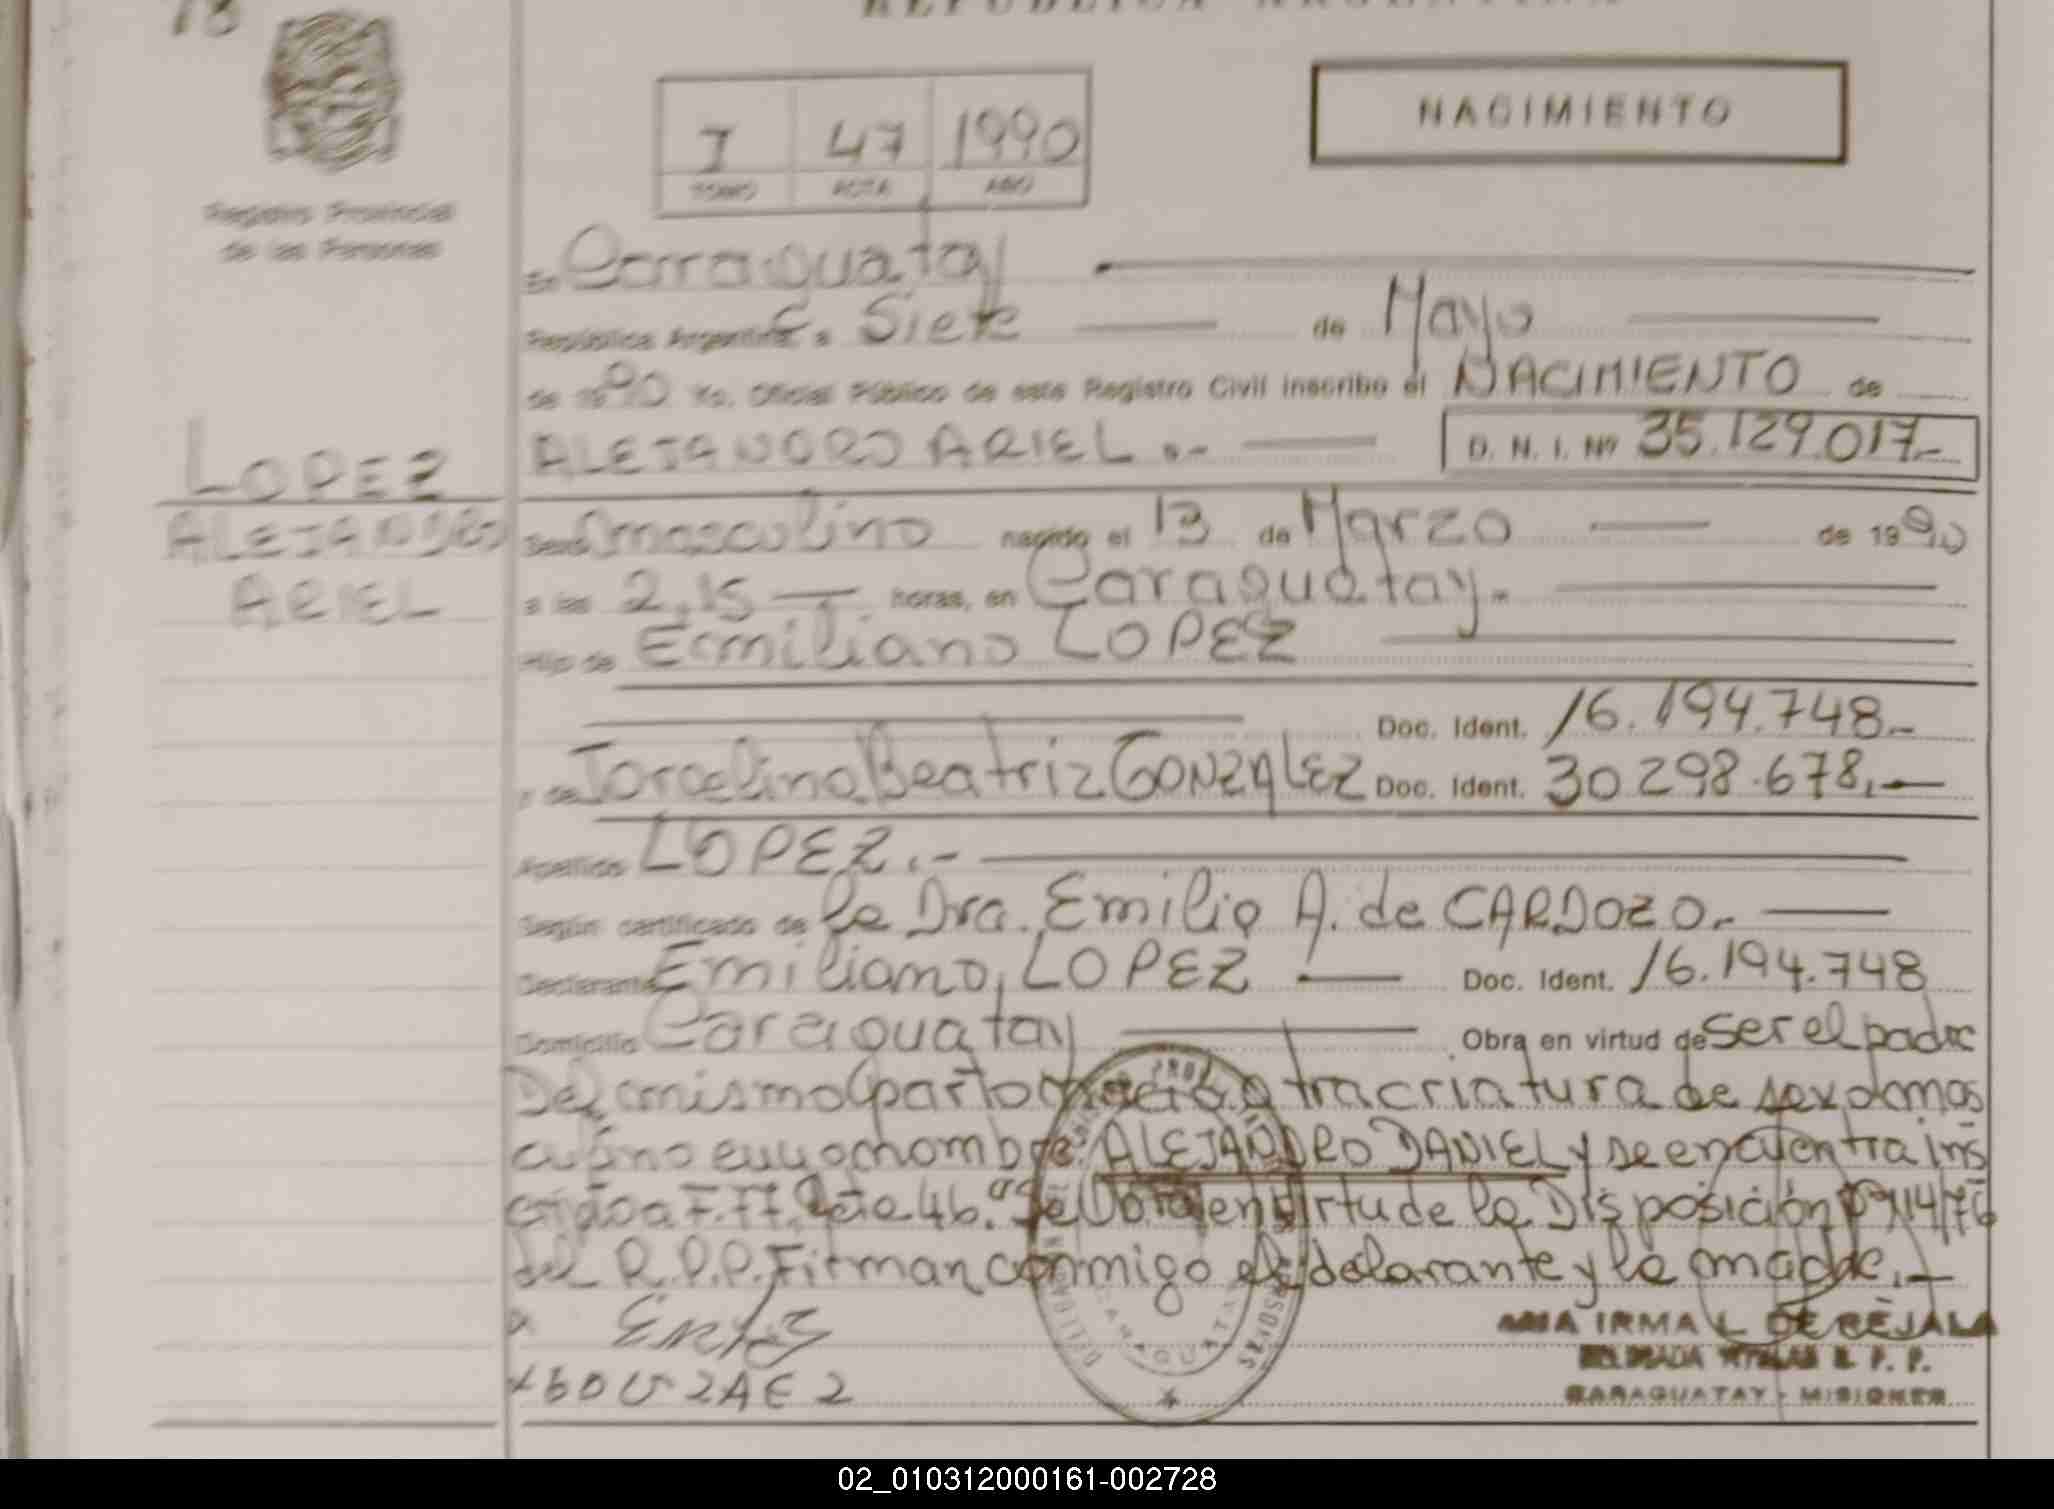 18
REPUBLICA ARGENTINA
NACIMIENTO
I 47 1990
TOMO ACTA AÑO
Registro Provincial
de las Personas
En Caraguatay
República Argentina a Siete de Mayo
de 1990 Yo, Oficial Público de este Registro Civil inscribo el NACIMIENTO de
ALEJANDRO ARIEL.- D. N. I. Nº 35.129.017.-
LOPEZ
ALEJANDRO
ARIEL
Sexo masculino nacido el 13 de Marzo de 1990
a las 2,15 horas, en Caraguatay.
Hijo de Emiliano LOPEZ
Doc. Ident. 16.194.748.-
y de Beatriz GONZALEZ Doc. Ident. 30.298.678,-
Apellido LOPEZ.-
Según certificado de la Dra. Emilia A. de CARDOZO.-
Declarante Emiliano, LOPEZ Doc. Ident. 16.194.748
Domicilio Caraguatay Obra en virtud de ser el padre
Del mismo parto nació otra criatura de sexo mas
culino cuyo nombre ALEJANDRO DANIEL y se encuentra ins
cripto a F. Acta 46. Se la Disposición Nº 14/76
del R.P.P. Firman conmigo el declarante y la madre.-
IRMA L DE BEJALA
DELEGADA TITULAR R. P. P.
CARAGUATAY - MISIONES
02_010312000161-002728